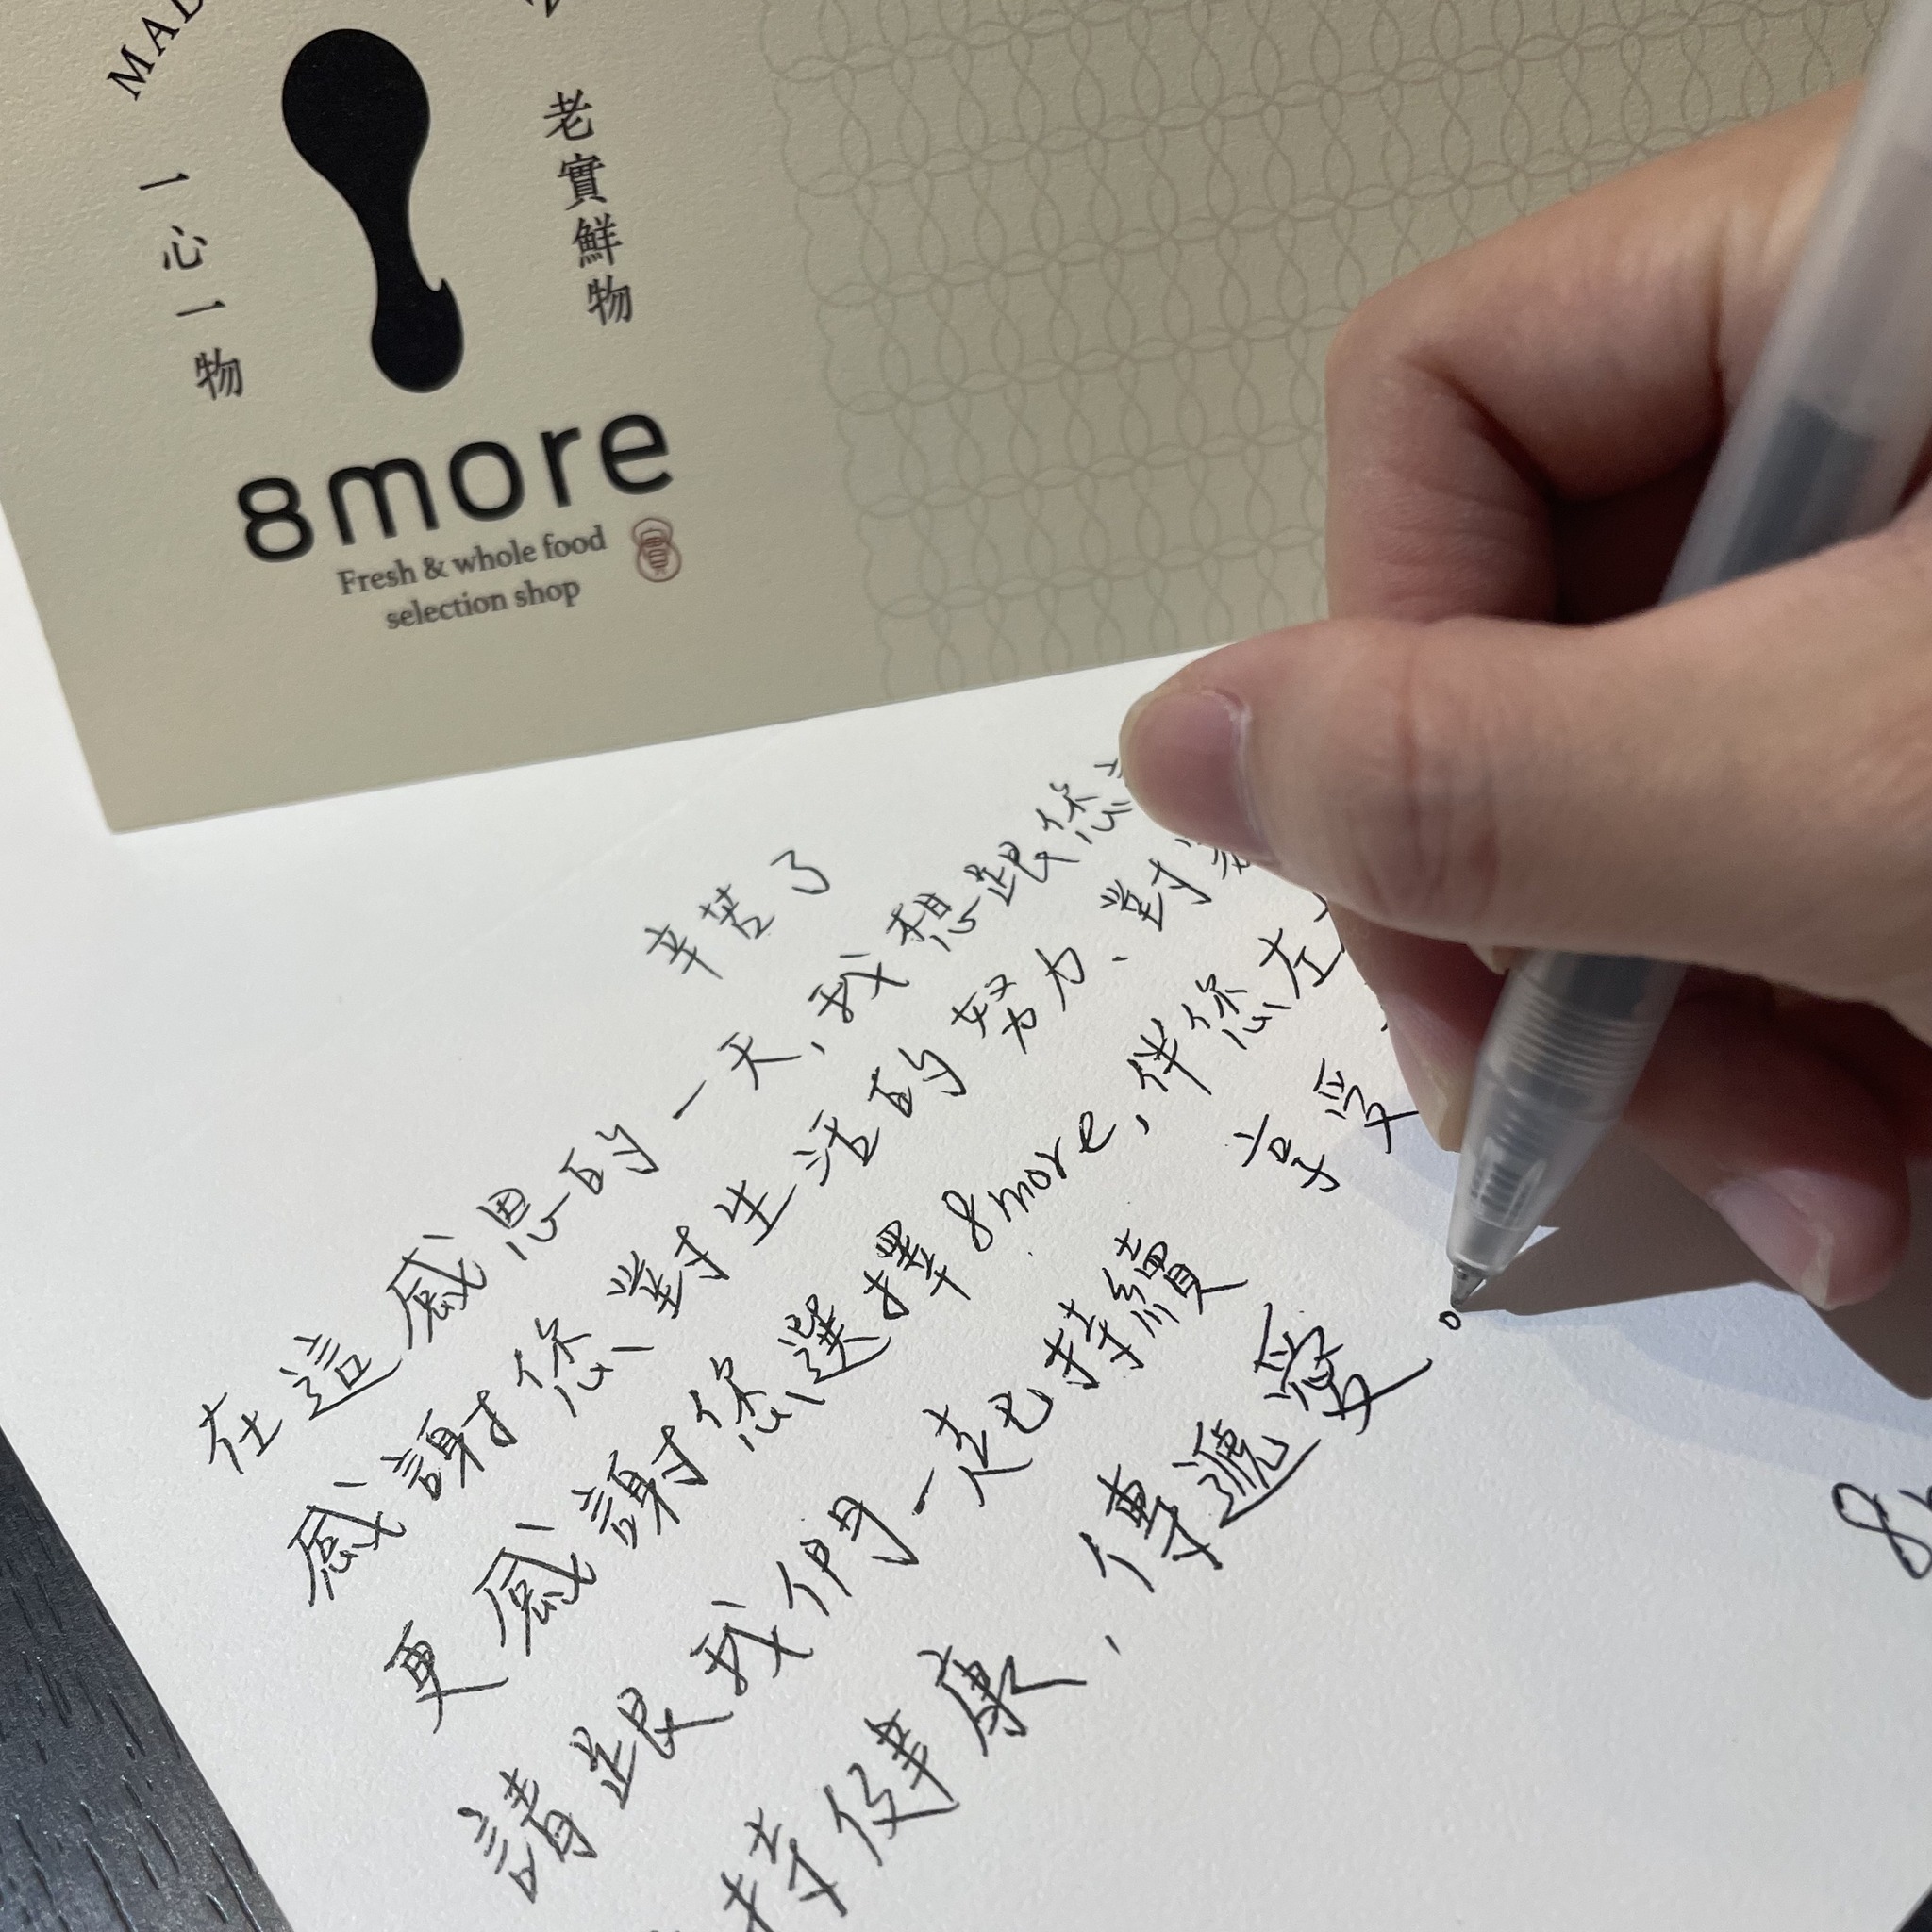 MAD
一心一物
老實鮮物
8more
Fresh & whole food
selection shop
辛苦了
在這感恩的一天,我想跟您
感謝您對生活的努力、對
更感謝您選擇8more,伴您左
享受
請跟我們一起持續
持健康、傳遞愛。
8